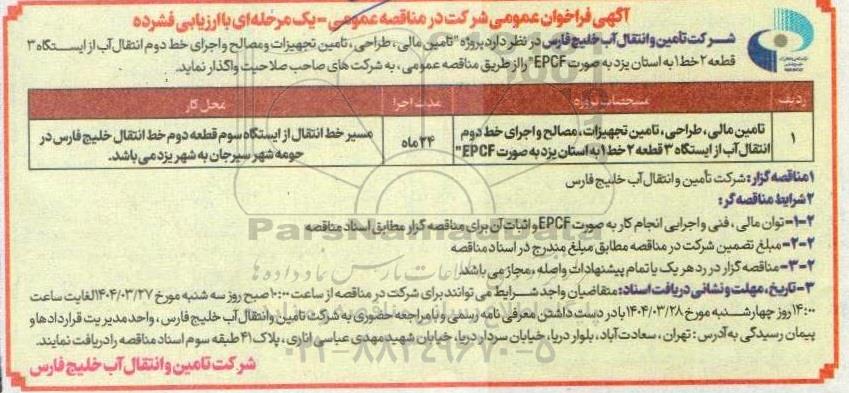 آگهی فراخوان عمومی شرکت در مناقصه عمومی - یک مرحله‌ای با ارزیابی فشرده
شرکت تامین و انتقال آب خلیج فارس در نظر دارد پروژه "تامین مالی، طراحی، تامین تجهیزات و مصالح و اجرای خط دوم انتقال آب از ایستگاه ۳
قطعه ۲ خط ۱ به استان یزد به صورت EPCF" را از طریق مناقصه عمومی، به شرکت های صاحب صلاحیت واگذار نماید.
ردیف مشخصات پروژه مدت اجرا محل کار
۱ تامین مالی، طراحی، تامین تجهیزات، مصالح و اجرای خط دوم ۲۴ ماه مسیر خط انتقال از ایستگاه سوم قطعه دوم خط انتقال خلیج فارس در
انتقال آب از ایستگاه ۳ قطعه ۲ خط ۱ به استان یزد به صورت EPCF" حومه شهر سیرجان به شهر یزد می باشد.
۱ مناقصه گزار: شرکت تأمین و انتقال آب خلیج فارس
۲ شرایط مناقصه گر:
۲-۱- توان مالی، فنی و اجرایی انجام کار به صورت EPCF و اثبات آن برای مناقصه گزار مطابق اسناد مناقصه
۲-۲- مبلغ تضمین شرکت در مناقصه مطابق مبلغ مندرج در اسناد مناقصه
۲-۳- مناقصه گزار در رد هر یک یا تمام پیشنهادات واصله، مجاز می باشد.
۳- تاریخ، مهلت و نشانی دریافت اسناد: متقاضیان واجد شرایط می توانند برای شرکت در مناقصه از ساعت ۱۰:۰۰ صبح روز سه شنبه مورخ ۱۴۰۴/۰۳/۲۷ لغایت ساعت
۱۴:۰۰ روز چهارشنبه مورخ ۱۴۰۴/۰۳/۲۸ با در دست داشتن معرفی نامه رسمی و با مراجعه حضوری به شرکت تامین و انتقال آب خلیج فارس، واحد مدیریت قراردادها و
پیمان رسیدگی به آدرس: تهران، سعادت آباد، بلوار دریا، خیابان سردار دریا، خیابان شهید مهدی عباسی اناری، پلاک ۴۱ طبقه سوم اسناد مناقصه را دریافت نمایند.
شرکت تامین و انتقال آب خلیج فارس
ParsNamadData
۰۲۱-۸۸۳۴۹۶۷۰-۵